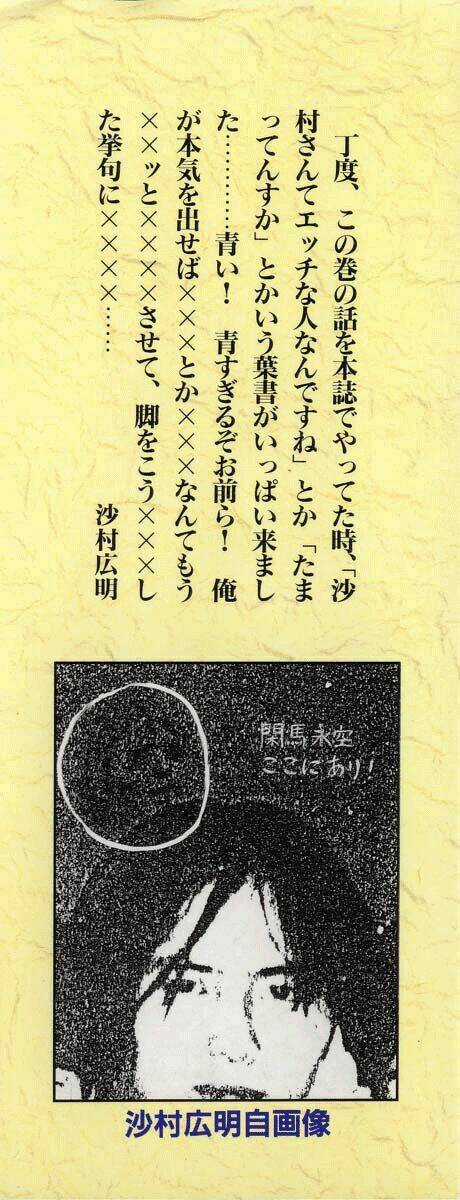 丁度、この巻の話を本誌でやってた時、「沙
村さんてエッチな人なんですね」とか「たま
ってんすか」とかいう葉書がいっぱい来まし
た…………青い！　青すぎるぞお前ら！　俺
が本気を出せば×××とか×××なんてもう
××ッと××××させて、脚をこう×××し
た挙句に××××……
沙村広明
閑馬永空
ここにあり！
沙村広明自画像